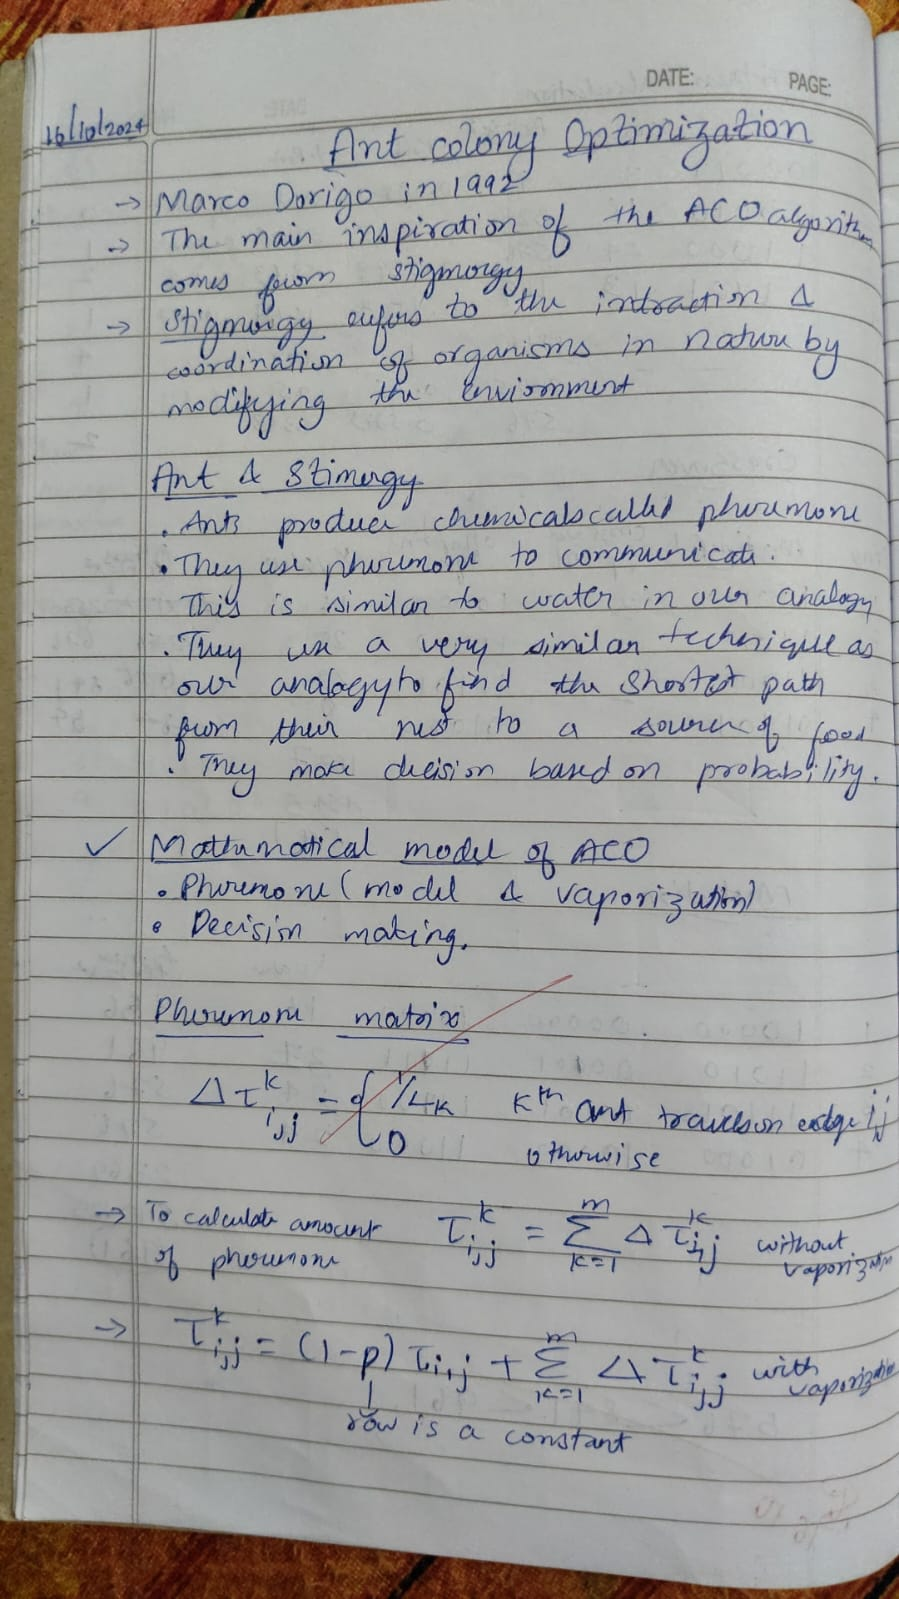 DATE: PAGE:
16/10/2024
Ant colony Optimization
→ Marco Dorigo in 1992
→ The main inspiration of the ACO algorithm
comes from stigmergy
→ Stigmergy refers to the intraction &
coordination of organisms in nature by
modifying the enviornment
Ant & Stimergy
. Ants produce chemicals called pheremone
• They use pheremone to communicate.
This is similar to water in our analogy
. They use a very similar technique as
our analogy to find the shortest path
from their nest to a source of food
. They make decision based on probability.
✓ Mathematical model of ACO
• Pheremone (model & vaporization)
• Decision making.
Pheremone matrix
Δτ^k_{i,j} = { 1/Lk  kth ant travels on edge ij
0  otherwise
→ To calculate amount of pheremone τ^k_{i,j} = Σ_{k=1}^{m} Δτ^k_{i,j} without vaporization
→ τ^k_{i,j} = (1-p) τ_{i,j} + Σ_{k=1}^{m} Δτ^k_{i,j} with vaporization
row is a constant